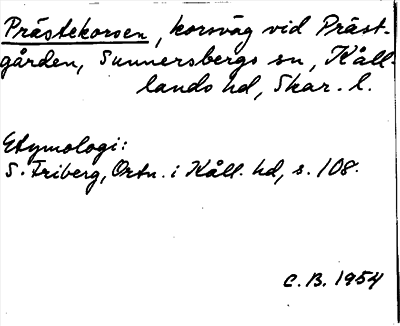 Prästekorsen, korsväg vid Präst-
gården, Sunnersbergs sn, Kåll-
lands hd, Skar. l.
Etymologi:
S. Friberg, Ortn. i Kåll. hd, s. 108.
C.B. 1954